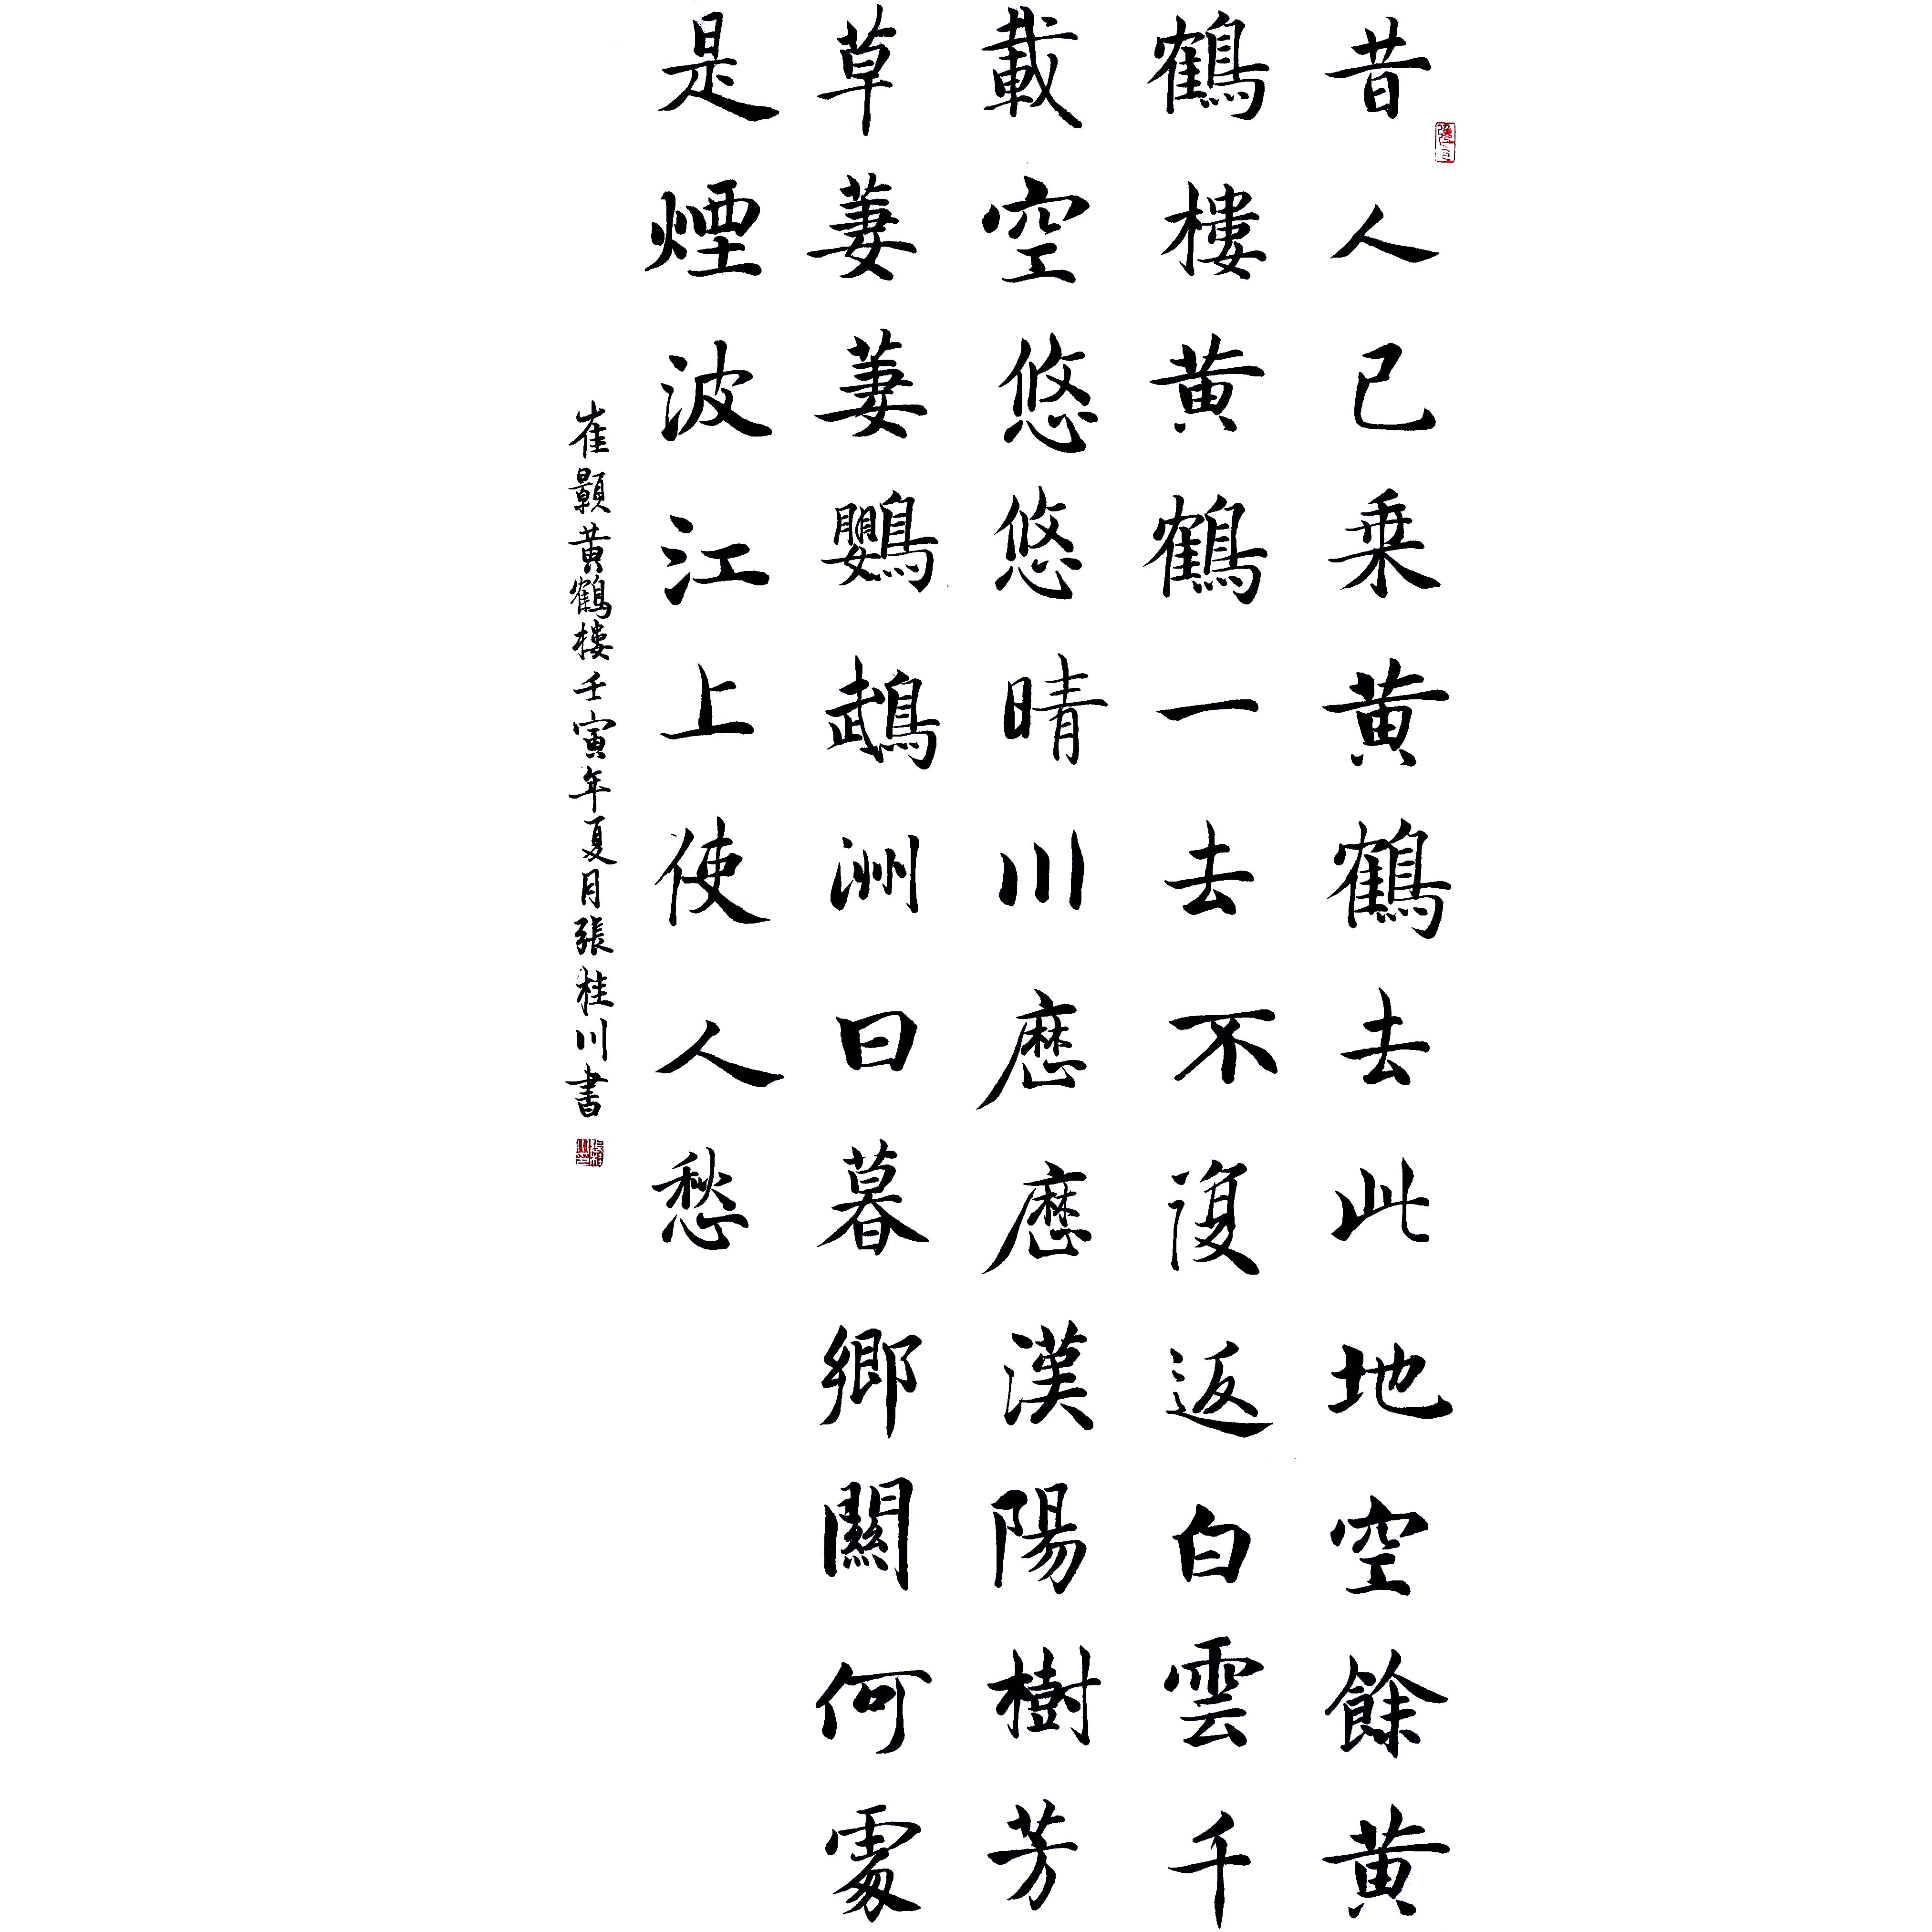 昔人已乘黃鶴去此地空餘黃
鶴樓黃鶴一去不復返白雲千
載空悠悠晴川歷歷漢陽樹芳
草萋萋鸚鵡洲日暮鄉關何處
是煙波江上使人愁
崔顥黃鶴樓壬寅年夏月張桂川書